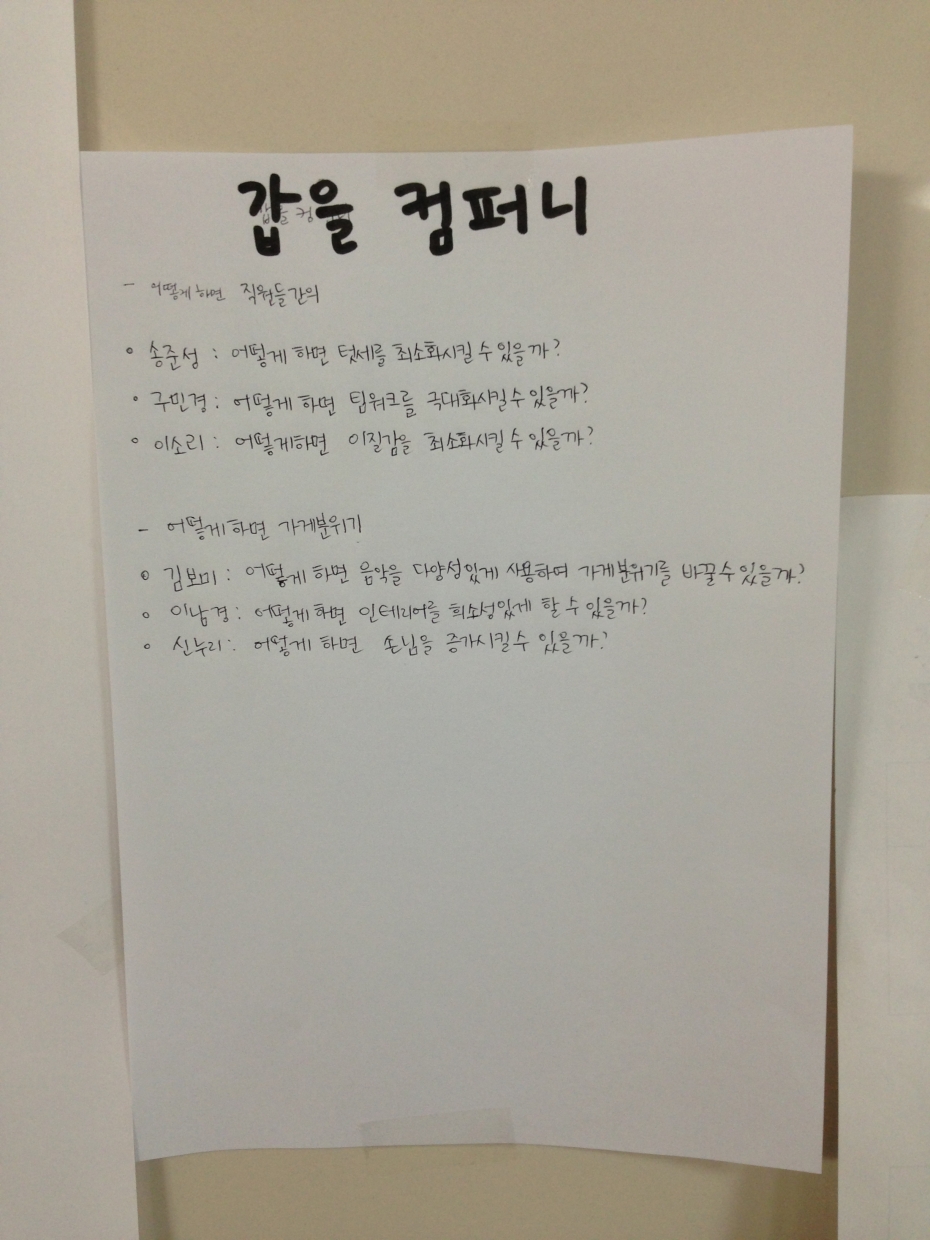 갑을 컴퍼니
- 어떻게 하면 직원들간의
송준성 : 어떻게 하면 텃세를 최소화시킬 수 있을까?
구민경 : 어떻게 하면 팀워크를 극대화시킬 수 있을까?
이소리 : 어떻게하면 이질감을 최소화시킬 수 있을까?
- 어떻게하면 가게분위기
김보미 : 어떻게 하면 음악을 다양성있게 사용하여 가게분위기를 바꿀 수 있을까?
이남경 : 어떻게 하면 인테리어를 희소성있게 할 수 있을까?
신누리 : 어떻게 하면 손님을 증가시킬 수 있을까?